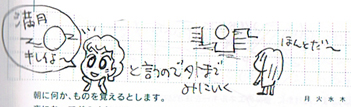 満月
キレイよ〜
と言うので外まで
みにいく
ほんとだ〜
月 火 水 木
朝に何か、ものを覚えるとします。